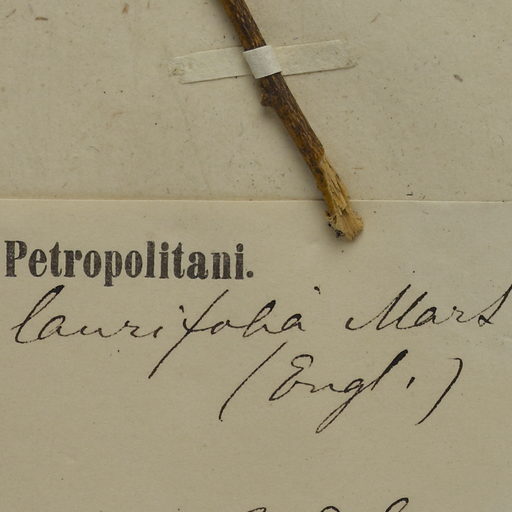 Petropolitani.
laurifolia Mart
(Engl.)